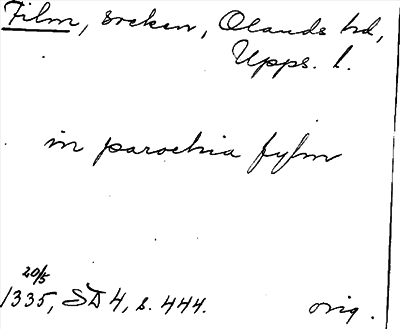 Film, socken, Olands hd,
Upps. l.
in parochia fylm
20/5
1335, SD 4, s. 444. orig.